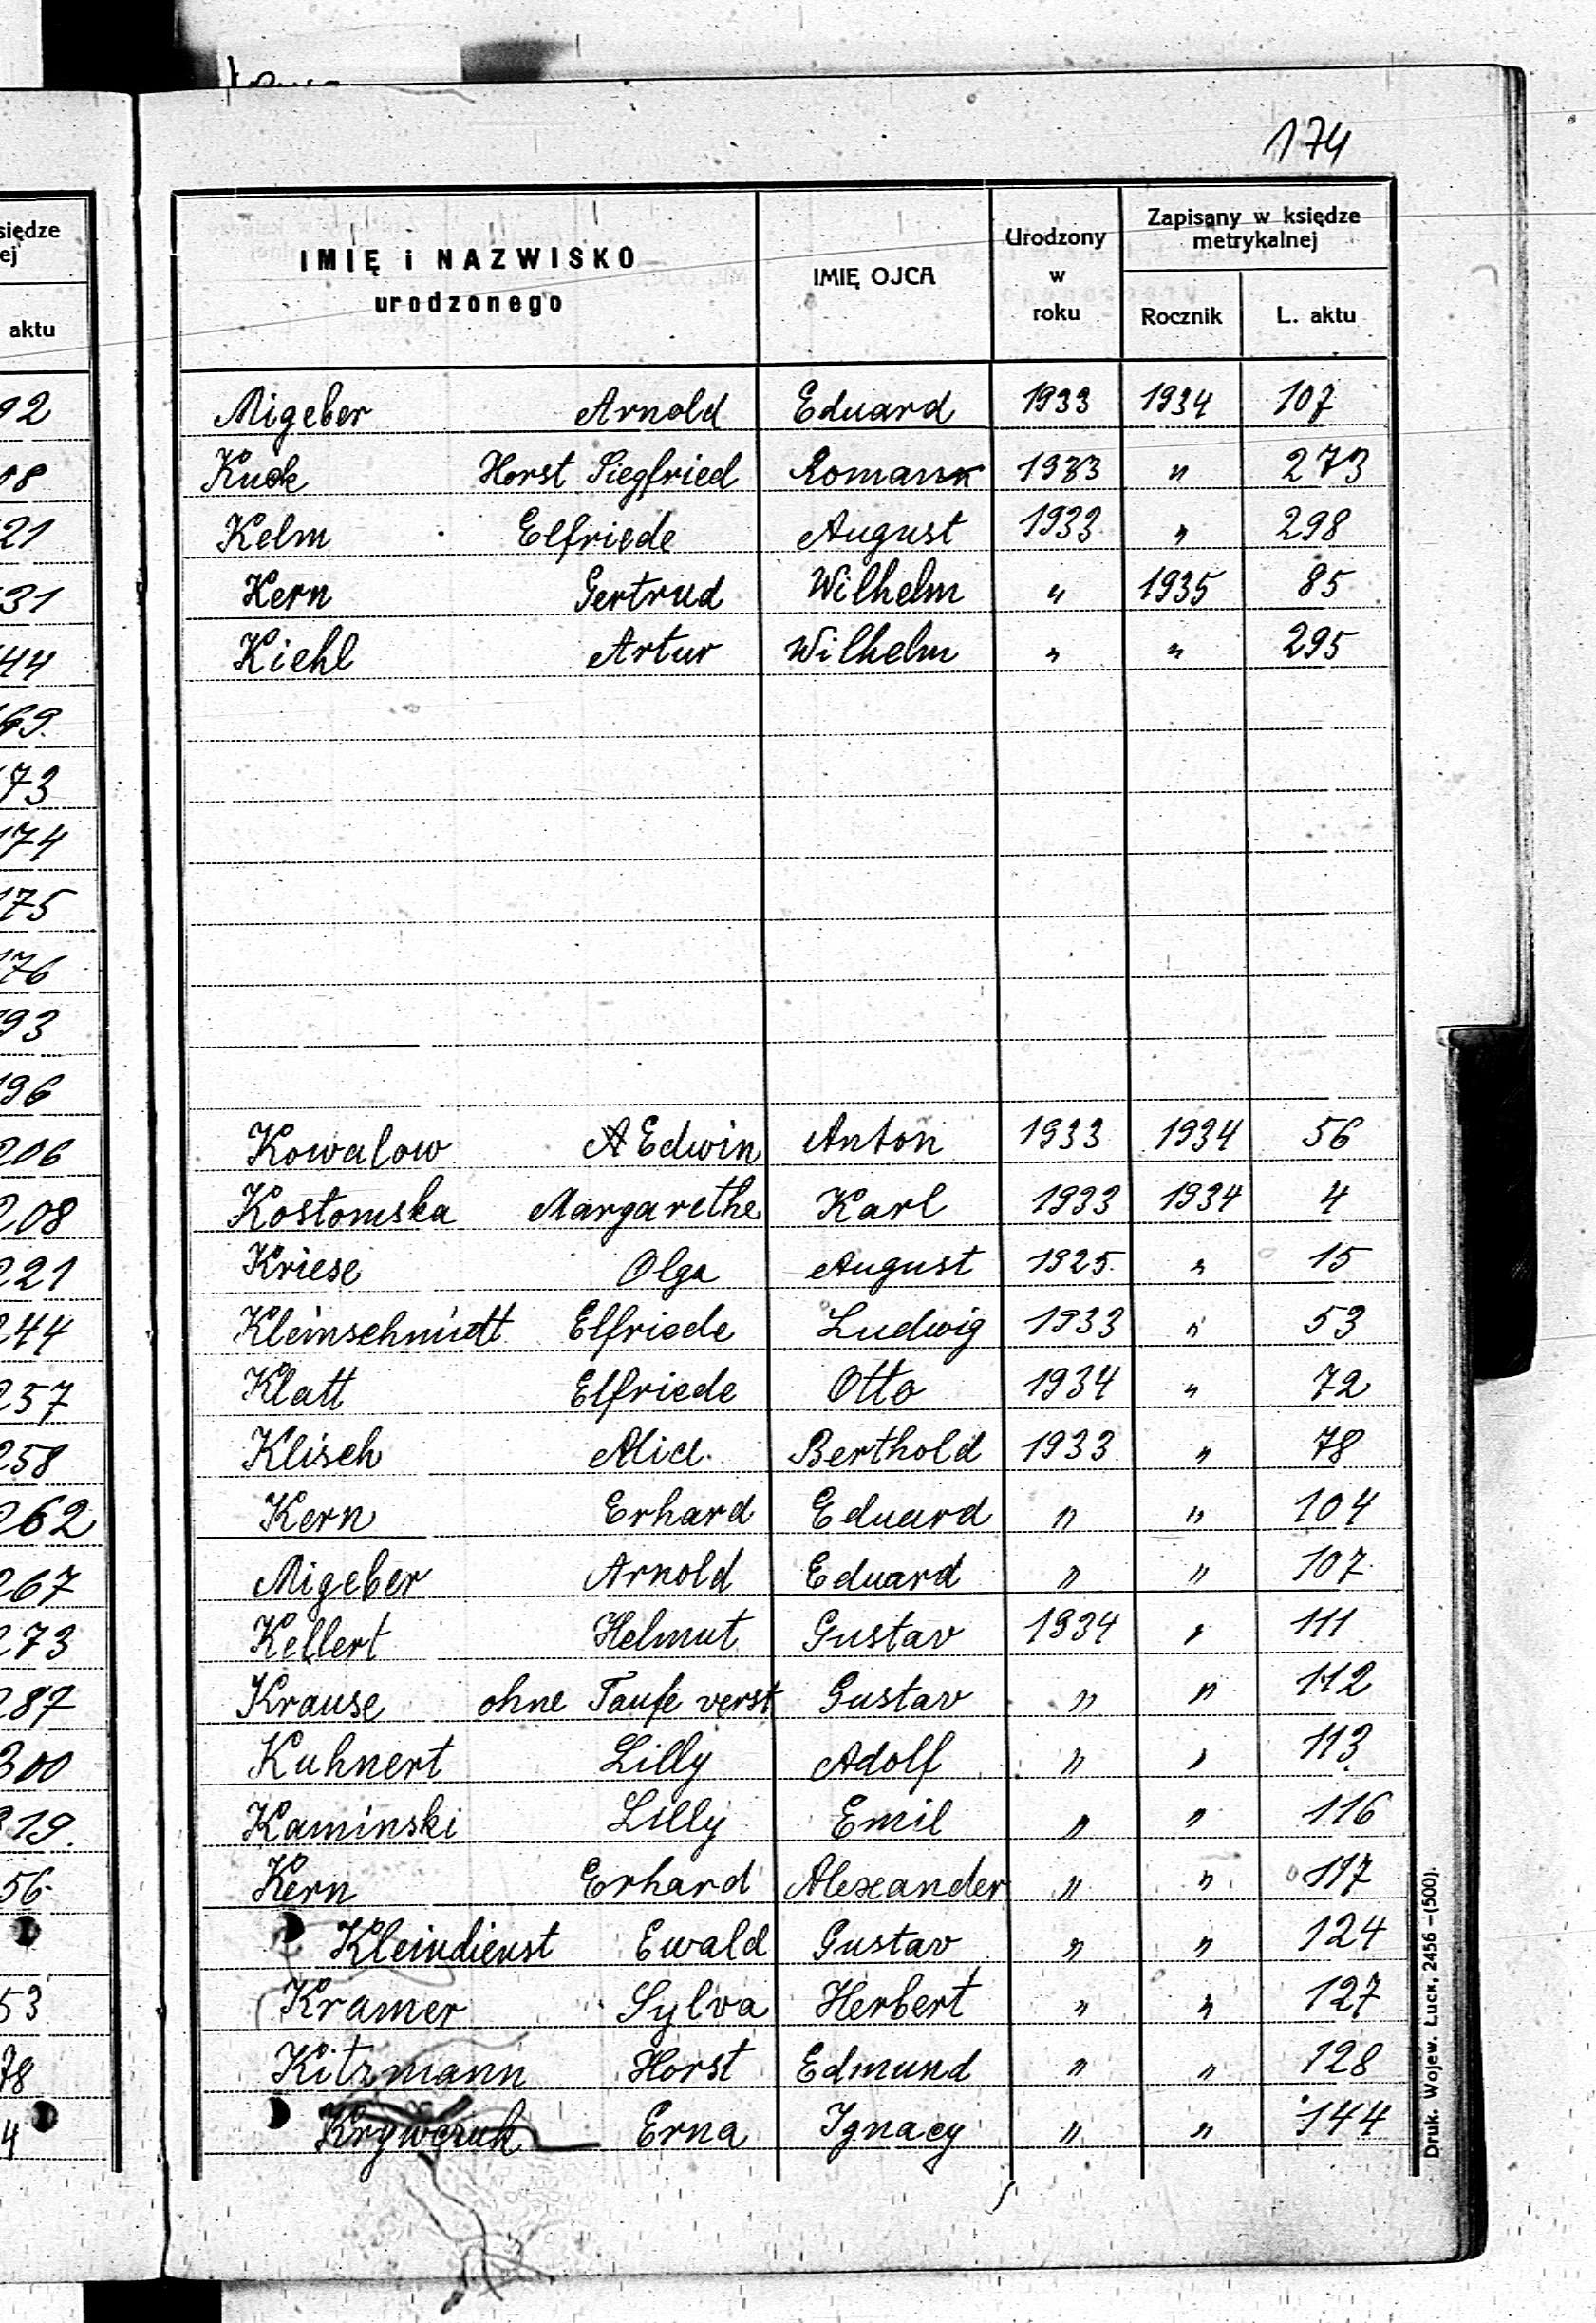 174
siędze
ej
aktu
92
08
21
31
44
169.
173
174
175
176
193
196
206
208
221
244
257
258
262
267
273
287
300
319.
56.
53
78
4
IMIĘ i NAZWISKO urodzonego IMIĘ OJCA Urodzony w roku Zapisany w księdze metrykalnej
Rocznik L. aktu
Migeber Arnold Eduard 1933 1934 107
Kuck Horst Siegfried Roman 1933 " 273
Kelm Elfriede August 1933 " 298
Kern Gertrud Wilhelm " 1935 85
Kiehl Artur Wilhelm " " 295
Kowalow A Edwin Anton 1933 1934 56
Kostomska Margarethe Karl 1933 1934 4
Kriese Olga August 1925. " 15
Kleinschmidt Elfriede Ludwig 1933 " 53
Klatt Elfriede Otto 1934 " 72
Klisch Berthold 1933 " 78
Kern Erhard Eduard " " 104
Migeber Arnold Eduard " " 107
Kellert Helmut Gustav 1934 " 111
Krause ohne Taufe verst Gustav " " 112
Kuhnert Lilly Adolf " " 113
Kaminski Lilly Emil " " 116
Kern Erhard Alexander " " 117
Kleindienst Ewald Gustav " " 124
Kramer Sylva Herbert " " 127
Kitzmann Horst Edmund " " 128
Krywczuk Erna Ignacy " " 144
Druk. Wojew. Łuck, 2456 –(500).